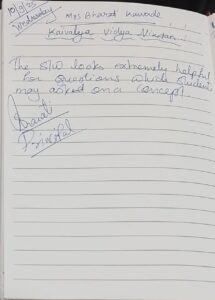 10/9/25
Wednesday
Mrs Bharat Kawade
Kaivalya Vidya Niketan
The S/W looks extremely helpful
for questions which students
may asked on a concept.
Principal